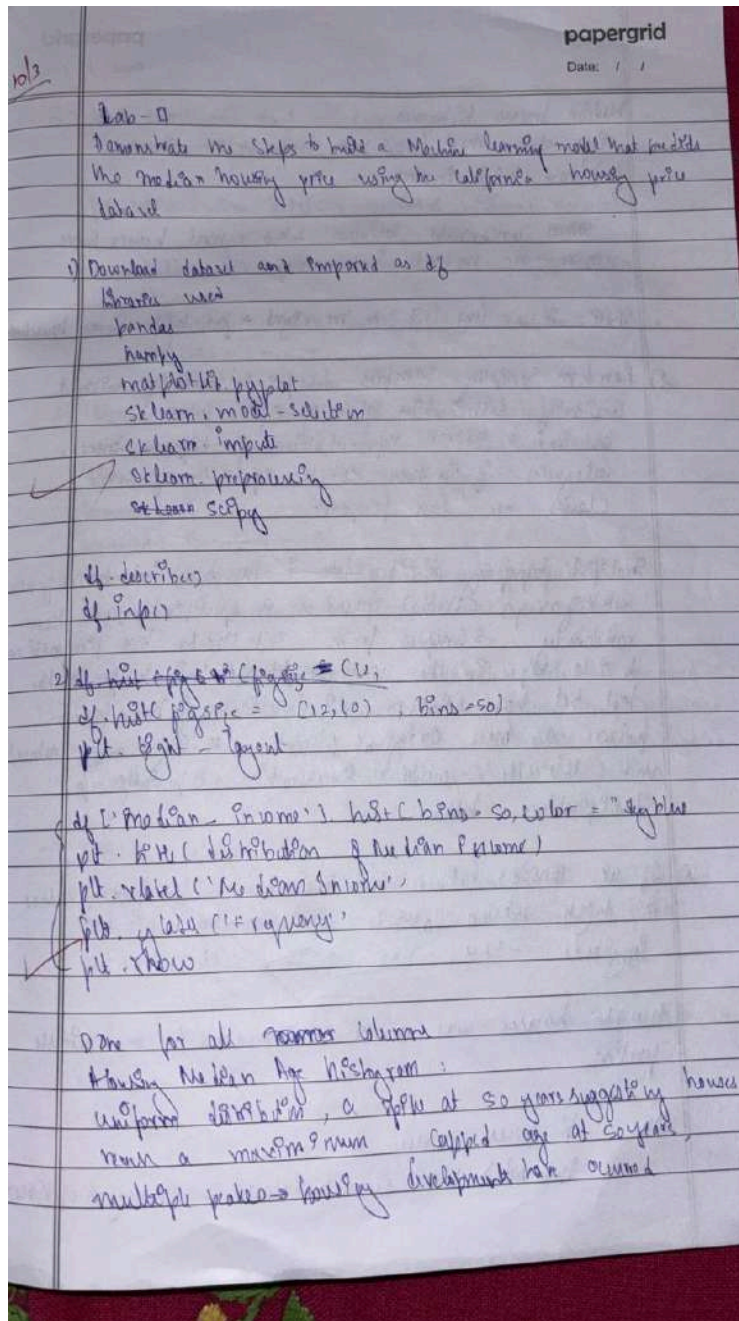 papergrid
Date: / /
10/3
Lab - 0
Demonstrate the steps to build a Machine learning model that predicts
the median housing price using the California housing price
dataset
1) Download dataset and imported as df
libraries used
pandas
numpy
matplotlib.pyplot
sklearn. model-selection
sklearn. impute
sklearn. preprocessing
scipy
df.describe()
df.info()
2) df.hist (figsize = (12,
df.hist( figsize = (12,10) , bins=50)
plt tight_layout
df ['median_income'] hist( bins=50, color = "skyblue
plt. title( distribution of Median income)
plt. xlabel ('Median Income',
plt. ylabel ('Frequency',
plt. show
Done for all columns
Housing Median Age histogram :
uniform distribution, a spike at 50 years suggesting houses
reach a maximum capped age at 50 years,
multiple peakes → housing developments have occurred